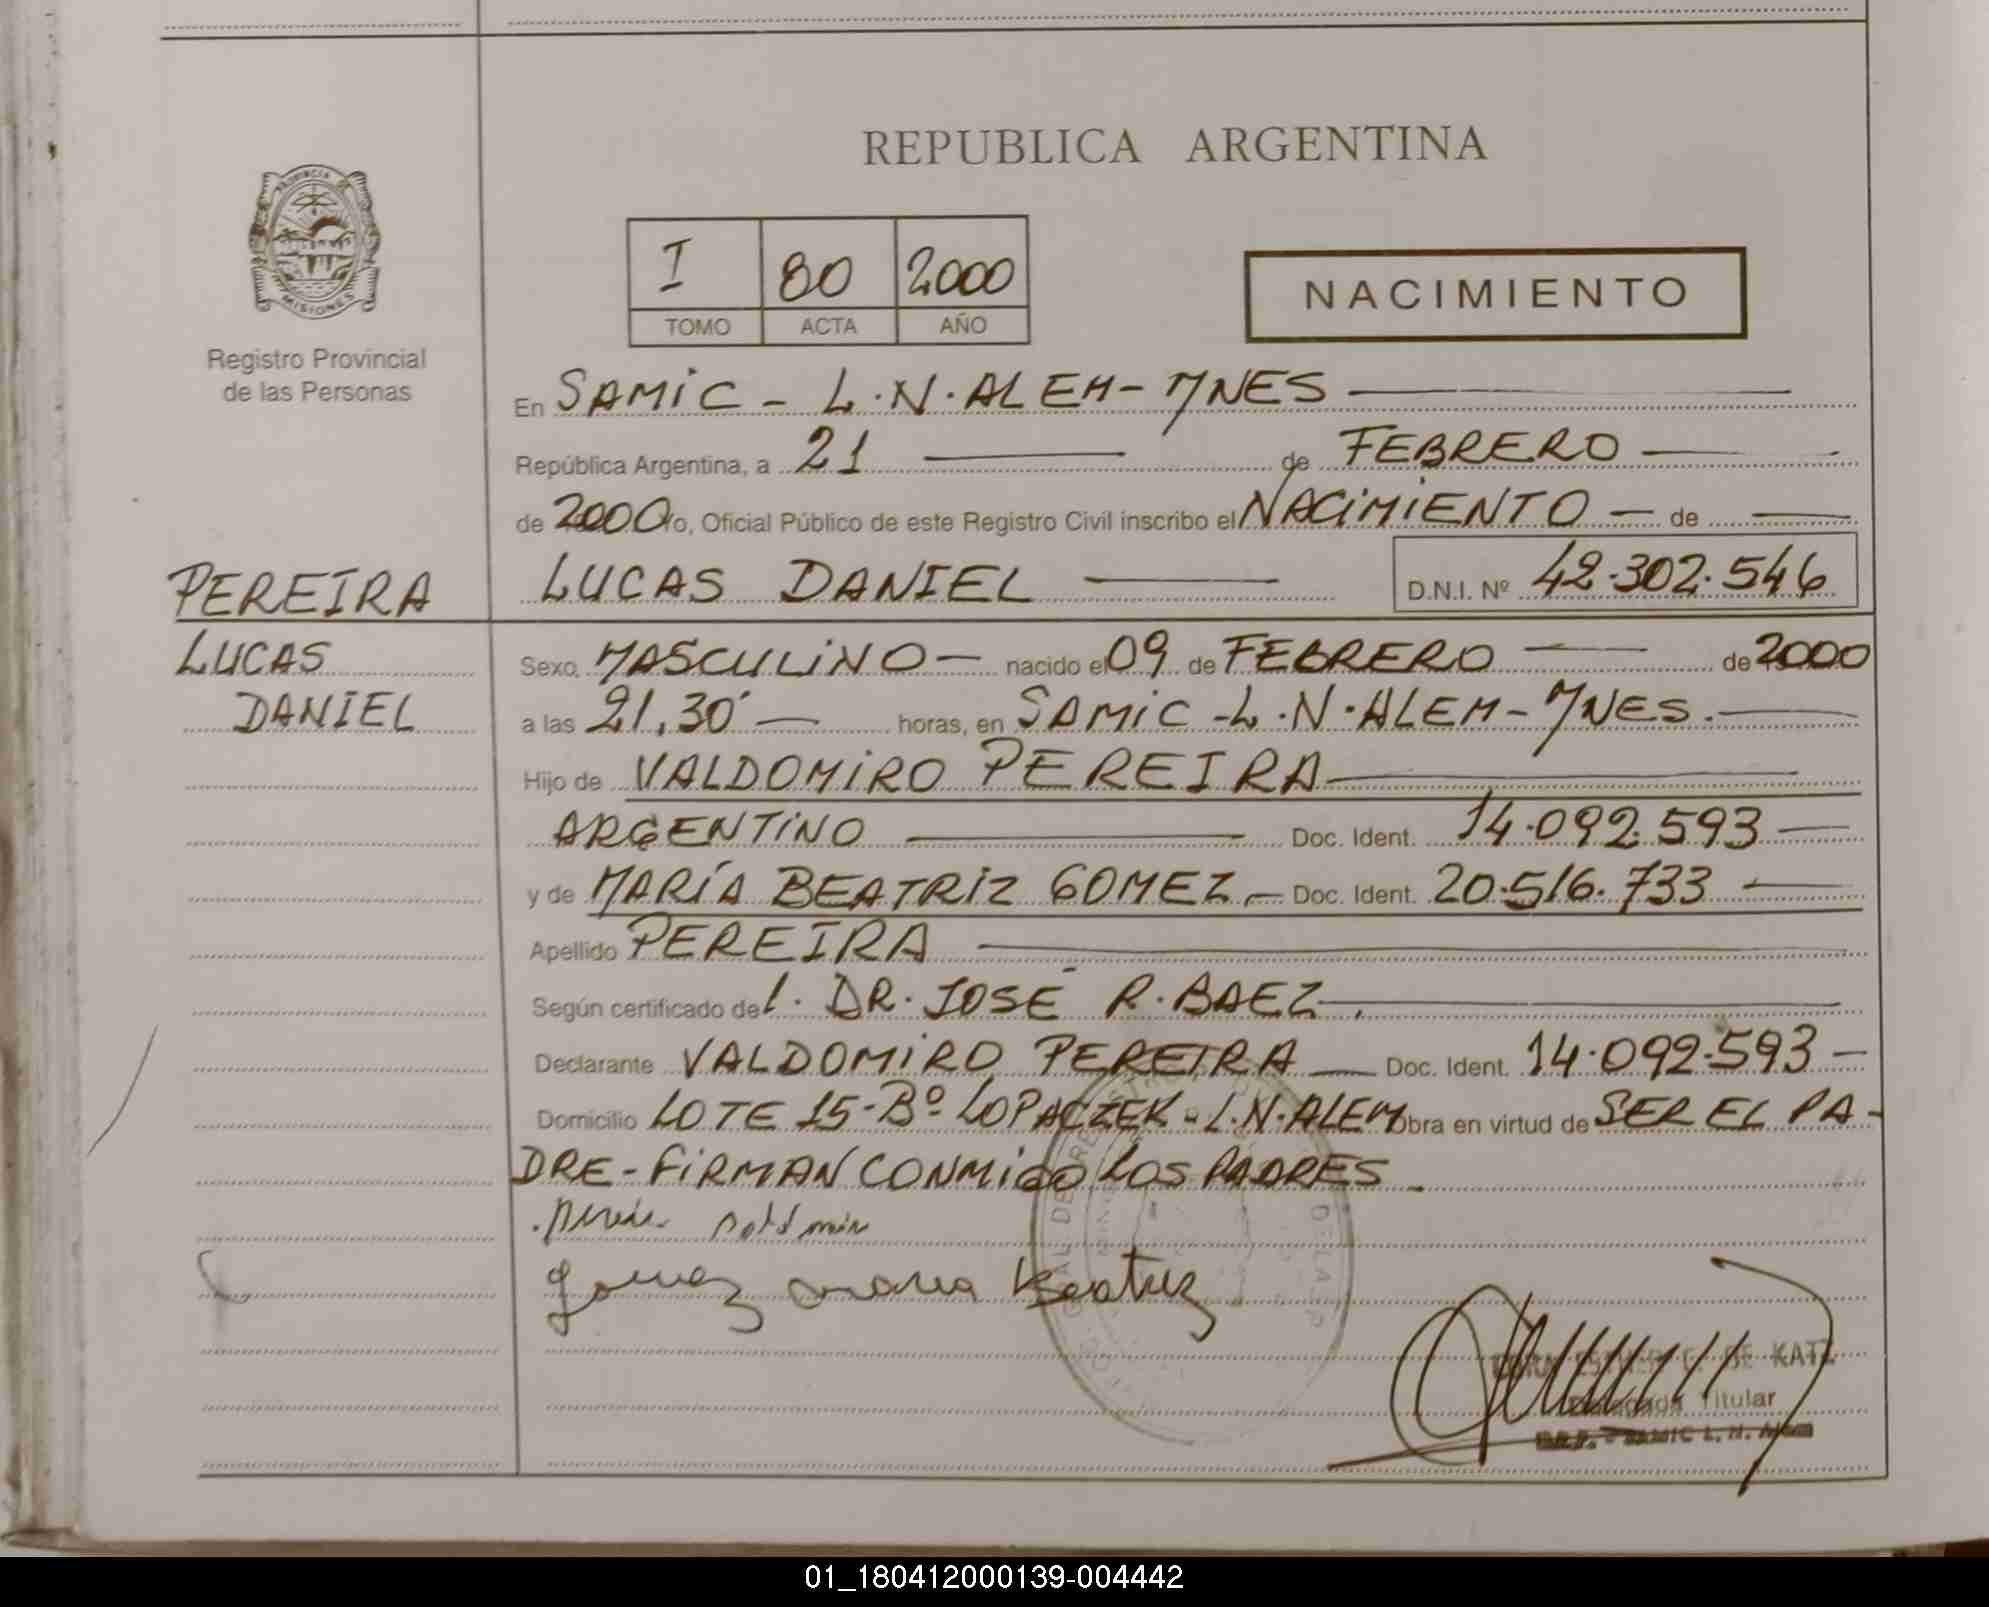 REPUBLICA ARGENTINA
PROVINCIA DE
MISIONES
Registro Provincial
de las Personas
I 80 2000
TOMO ACTA AÑO
NACIMIENTO
En SAMIC - L.N.ALEM - MNES
República Argentina, a 21 de FEBRERO
de 2000 Yo, Oficial Público de este Registro Civil inscribo el NACIMIENTO de
LUCAS DANIEL D.N.I. Nº 42.302.546
PEREIRA
LUCAS
DANIEL
Sexo MASCULINO nacido el 09 de FEBRERO de 2000
a las 21,30 horas, en SAMIC - L.N.ALEM - MNES.
Hijo de VALDOMIRO PEREIRA
ARGENTINO Doc. Ident. 14.092.593
y de MARÍA BEATRIZ GOMEZ Doc. Ident. 20.516.733
Apellido PEREIRA
Según certificado del. DR. JOSÉ R. BAEZ.
Declarante VALDOMIRO PEREIRA Doc. Ident. 14.092.593
Domicilio LOTE 15 - Bº LOPACZEK - L.N.ALEM Obra en virtud de SER EL PA-
DRE - FIRMAN CONMIGO LOS PADRES
gomez maria Beatriz
DE KATZ
Delegada Titular
SAMIC L. N. Alem
01_180412000139-004442